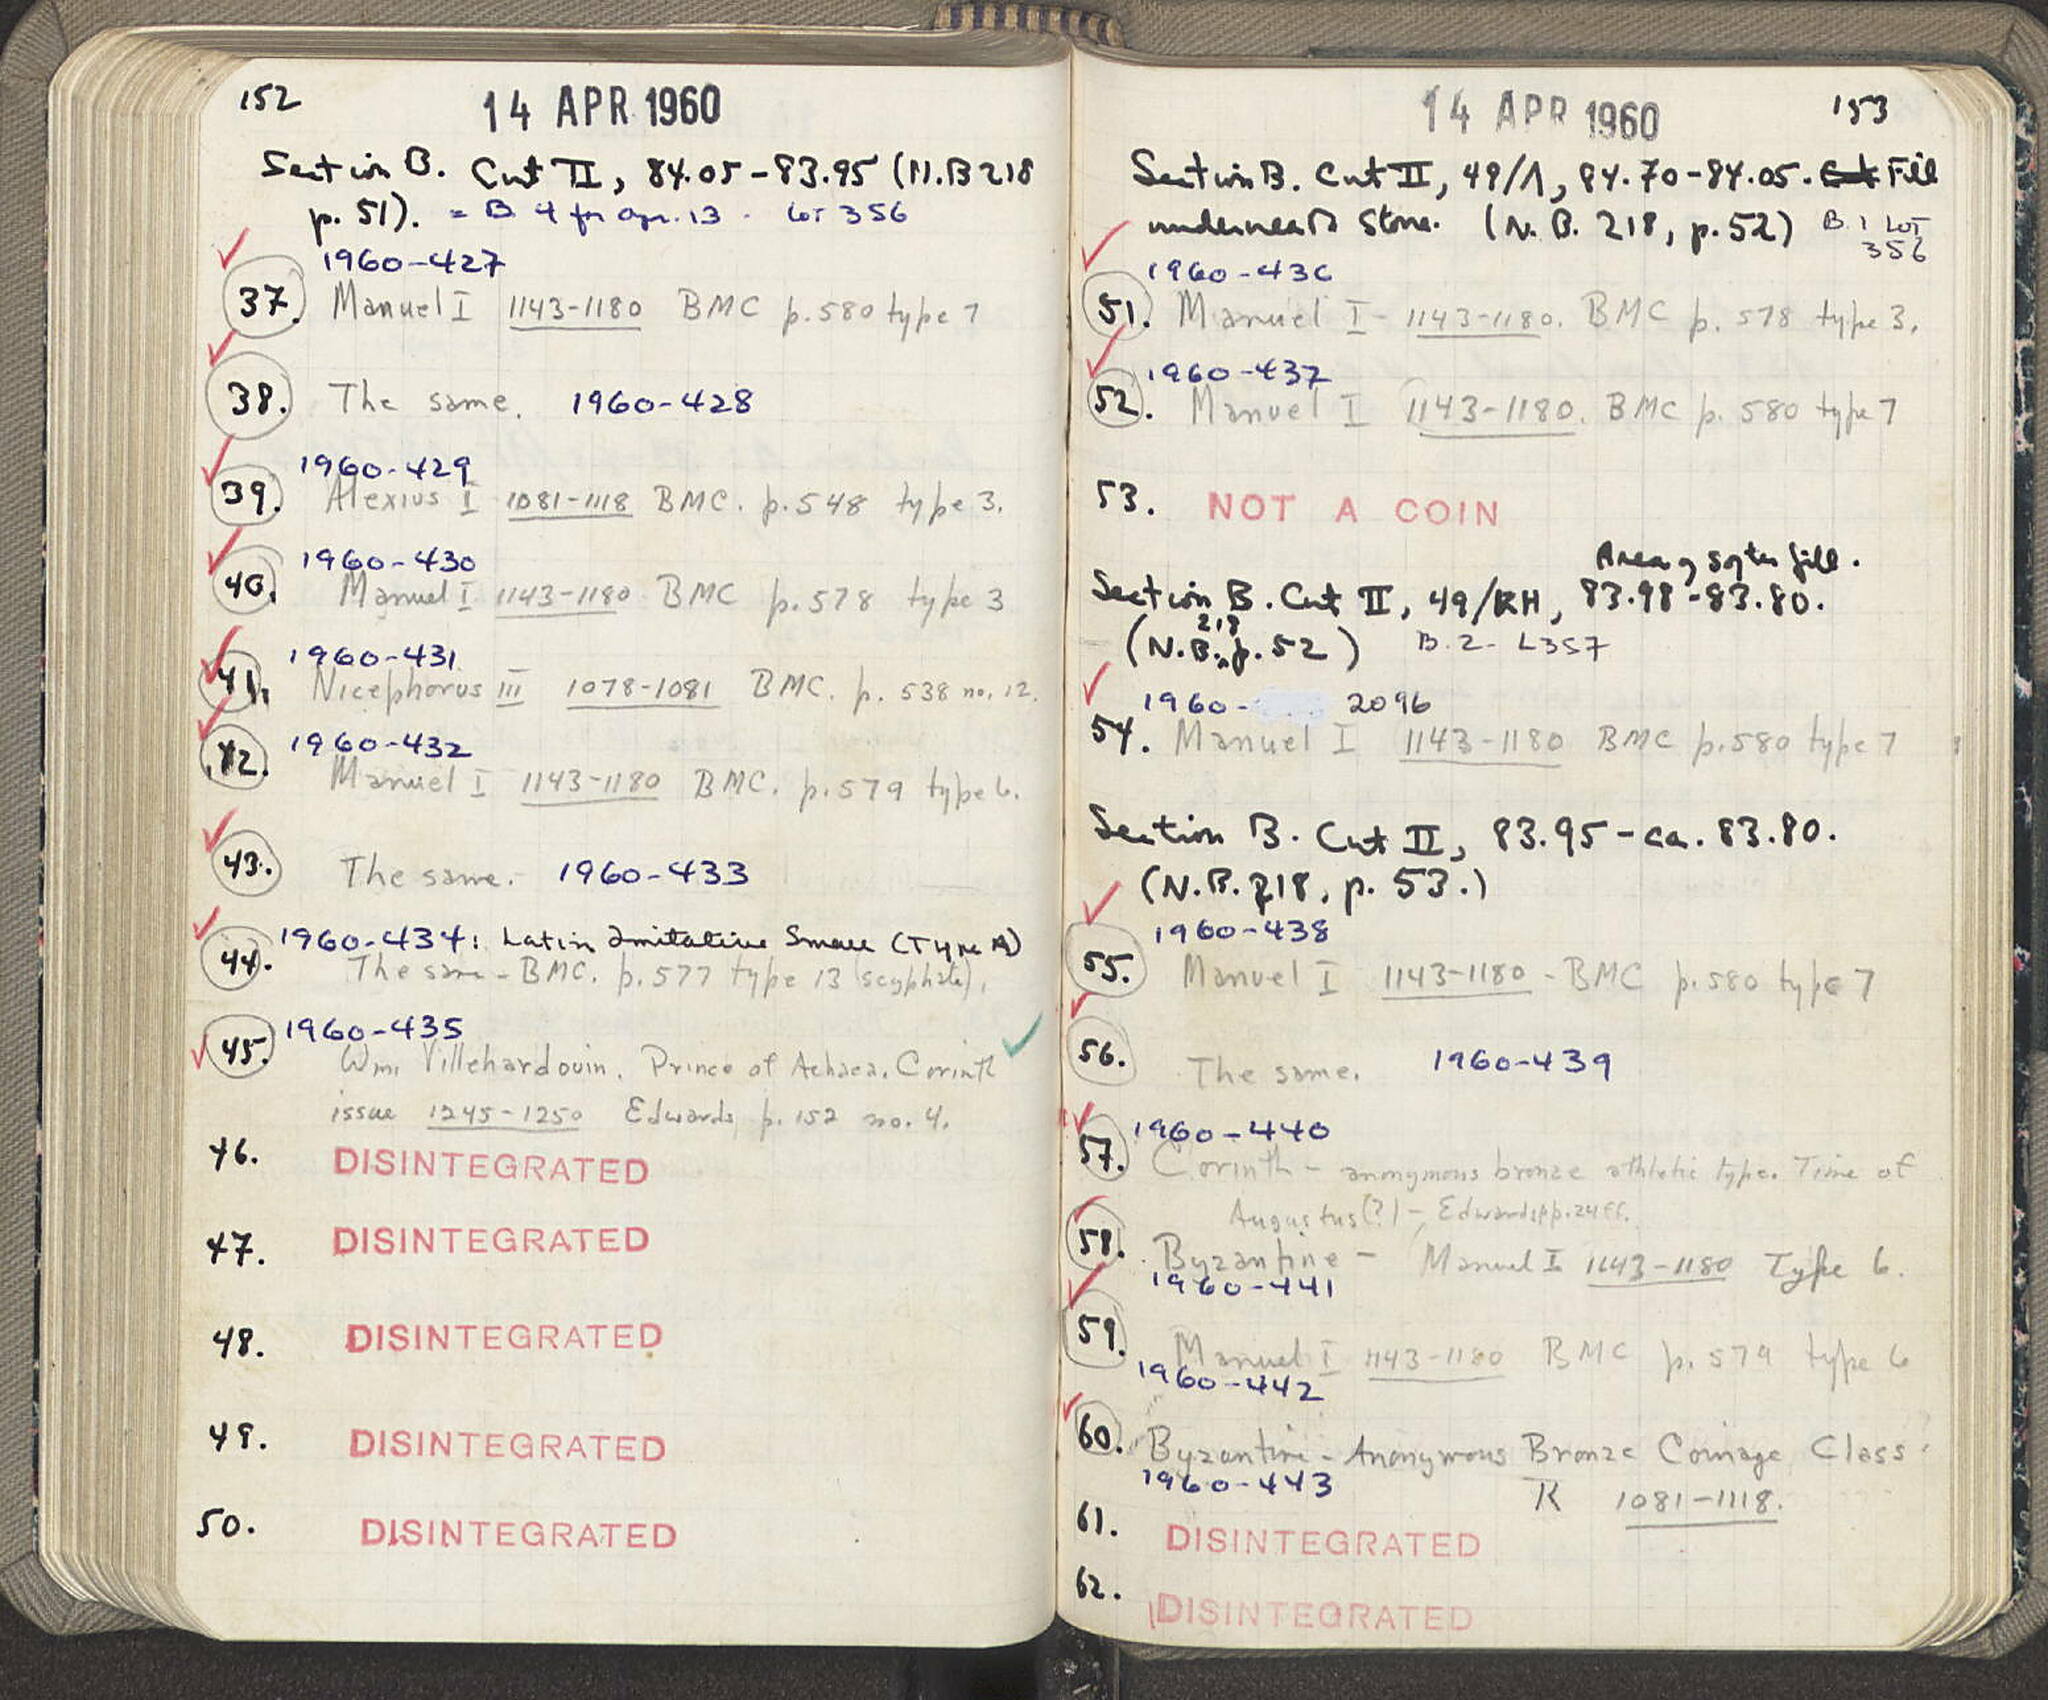 152
14 APR 1960
Section B. Cut II, 84.05-83.95 (N.B 218
p. 51). = B 4 for Apr. 13 - Lot 356
1960-427
37. Manuel I 1143-1180 BMC p.580 type 7
38. The same. 1960-428
1960-429
39. Alexius I 1081-1118 BMC. p.548 type 3.
1960-430
40. Manuel I 1143-1180 BMC p.578 type 3
1960-431
41. Nicephorus III 1078-1081 BMC. p. 538 no. 12.
1960-432
42. Manuel I 1143-1180 BMC. p.579 type 6.
43. The same. 1960-433
1960-434: Latin Imitative Small (Type A)
44. The same - BMC. p.577 type 13 (scyphate).
1960-435
45. Wm. Villehardouin. Prince of Achaea. Corinth
issue 1245-1250 Edwards p. 152 no. 4.
46. DISINTEGRATED
47. DISINTEGRATED
48. DISINTEGRATED
49. DISINTEGRATED
50. DISINTEGRATED
14 APR 1960
153
Section B. Cut II, 49/Λ, 84.70-84.05. Cut Fill
underneath Stone. (N.B. 218, p.52) B. 1 Lot
356
1960-436
51. Manuel I - 1143-1180. BMC p. 578 type 3.
1960-437
52. Manuel I 1143-1180. BMC p. 580 type 7
53. NOT A COIN
Area of softer fill.
Section B. Cut II, 49/KH, 83.98-83.80.
(N.B. 218 p.52) B.2- L357
1960- 2096
54. Manuel I 1143-1180 BMC p.580 type 7
Section B. Cut II, 83.95-ca. 83.80.
(N.B. 218, p. 53.)
1960-438
55. Manuel I 1143-1180 - BMC p.580 type 7
56. The same. 1960-439
1960-440
57. Corinth - anonymous bronze athletic type. Time of
Augustus(?) - Edwards pp.24ff.
58. Byzantine - Manuel I 1143-1180 Type 6.
1960-441
59. Manuel I 1143-1180 BMC p. 579 type 6
1960-442
60. Byzantine - Anonymous Bronze Coinage Class
1960-443 K 1081-1118.
61. DISINTEGRATED
62. DISINTEGRATED